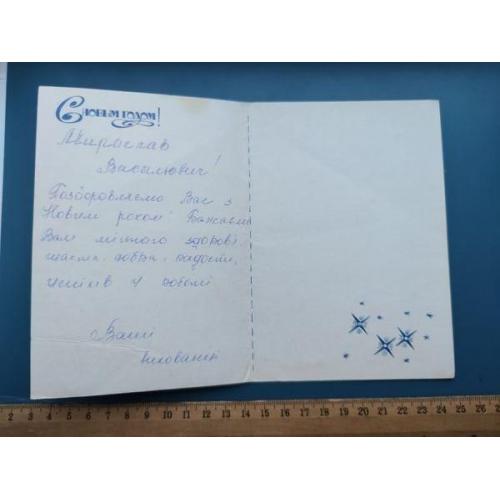 С новым годом!
Мирослав
Василювич!
Поздоровляємо Вас з
Новим роком! Бажаєм
Вам міцного здоровʼ
щастя, добра, радости,
успіхів у роботі
Ваші
2 3 4 5 6 7 8 9 10 11 12 13 14 15 16 17 18 19 20 21 22 23 24 25 26